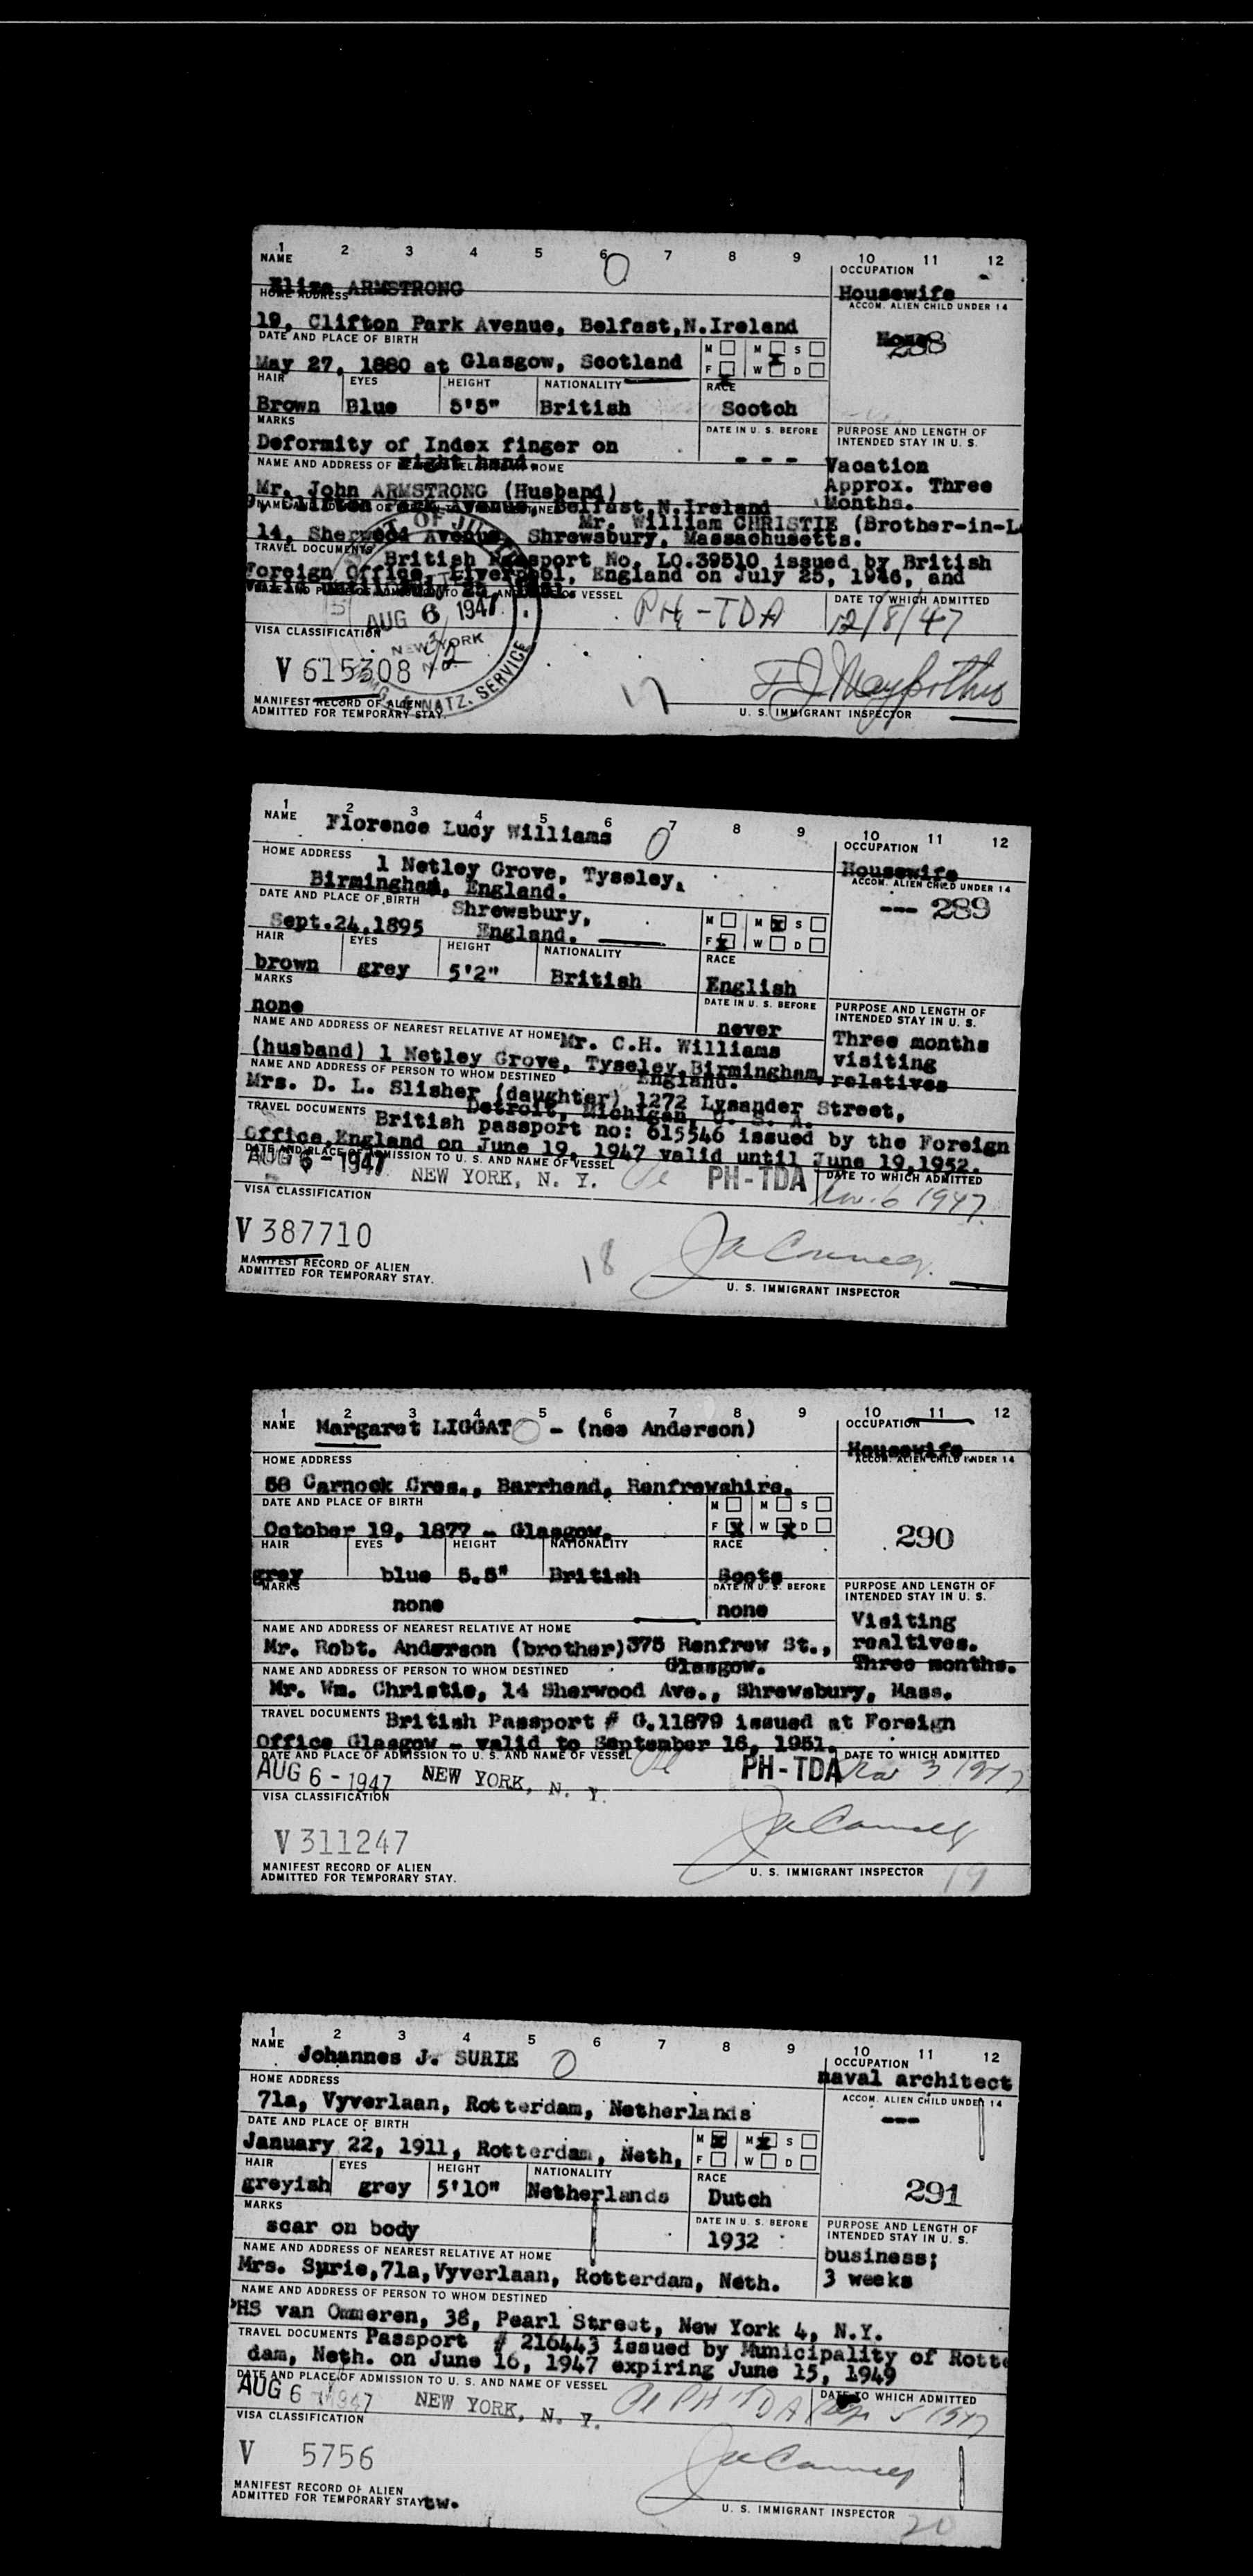 1 2 3 4 5 6 7 8 9 10 11 12
NAME OCCUPATION
Eliza ARMSTRONG Housewife
HOME ADDRESS ACCOM. ALIEN CHILD UNDER 14
19, Clifton Park Avenue, Belfast,N.Ireland None 288
DATE AND PLACE OF BIRTH M M S
May 27, 1880 at Glasgow, Scotland F x W x D
HAIR EYES HEIGHT NATIONALITY RACE
Brown Blue 5'5" British Scotch
MARKS DATE IN U. S. BEFORE PURPOSE AND LENGTH OF INTENDED STAY IN U. S.
Deformity of Index finger on - - -
right hand. Vacation
NAME AND ADDRESS OF NEAREST RELATIVE AT HOME
Mr. John ARMSTRONG (Husband) Approx. Three
Clifton Park Avenue, Belfast,N.Ireland Months.
Mr. William CHRISTIE (Brother-in-L
14, Sherwood Avenue, Shrewsbury, Massachusetts.
TRAVEL DOCUMENTS British Passport No. LO.39510 issued by British
Foreign Office, Liverpool, England on July 25, 1946, and
valid until July 25 1951.
VESSEL DATE TO WHICH ADMITTED
AUG 6 1947 PH-TDA 12/8/47
VISA CLASSIFICATION NEW YORK
V 615308
NATZ. SERVICE
17
MANIFEST RECORD OF ALIEN
ADMITTED FOR TEMPORARY STAY. U. S. IMMIGRANT INSPECTOR
1 2 3 4 5 6 7 8 9 10 11 12
NAME Florence Lucy Williams OCCUPATION
Housewife
HOME ADDRESS 1 Netley Grove, Tyseley, ACCOM. ALIEN CHILD UNDER 14
Birmingham, England. --- 289
DATE AND PLACE OF BIRTH Shrewsbury, M M x S
Sept.24,1895 England. F x W D
HAIR EYES HEIGHT NATIONALITY RACE
brown grey 5'2" British English
MARKS DATE IN U. S. BEFORE PURPOSE AND LENGTH OF INTENDED STAY IN U. S.
none never
NAME AND ADDRESS OF NEAREST RELATIVE AT HOME Mr. C.H. Williams Three months
(husband) 1 Netley Grove, Tyseley,Birmingham, visiting
England. relatives
NAME AND ADDRESS OF PERSON TO WHOM DESTINED
Mrs. D. L. Slisher (daughter) 1272 Lysander Street,
Detroit, Michigan, U. S. A.
TRAVEL DOCUMENTS British passport no: 615546 issued by the Foreign
Office,England on June 19, 1947 valid until June 19,1952.
DATE AND PLACE OF ADMISSION TO U. S. AND NAME OF VESSEL DATE TO WHICH ADMITTED
AUG 6 - 1947 NEW YORK, N. Y. PH-TDA Nov. 6 1947
VISA CLASSIFICATION
V 387710
18
MANIFEST RECORD OF ALIEN
ADMITTED FOR TEMPORARY STAY. U. S. IMMIGRANT INSPECTOR
1 2 3 4 5 6 7 8 9 10 11 12
NAME Margaret LIGGAT - (nee Anderson) OCCUPATION
Housewife
HOME ADDRESS ACCOM. ALIEN CHILD UNDER 14
58 Carnock Cres., Barrhead, Renfrewshire.
DATE AND PLACE OF BIRTH M M S
October 19, 1877 - Glasgow. F x W x D 290
HAIR EYES HEIGHT NATIONALITY RACE
grey blue 5.5" British Scots
MARKS DATE IN U. S. BEFORE PURPOSE AND LENGTH OF INTENDED STAY IN U. S.
none none
NAME AND ADDRESS OF NEAREST RELATIVE AT HOME Visiting
Mr. Robt. Anderson (brother)375 Renfrew St., realtives.
Glasgow. Three months.
NAME AND ADDRESS OF PERSON TO WHOM DESTINED
Mr. Wm. Christie, 14 Sherwood Ave., Shrewsbury, Mass.
TRAVEL DOCUMENTS British Passport # G.11879 issued at Foreign
Office Glasgow - valid to September 16, 1951.
DATE AND PLACE OF ADMISSION TO U. S. AND NAME OF VESSEL DATE TO WHICH ADMITTED
AUG 6 - 1947 NEW YORK, N. Y. PH-TDA Nov 3 1947
VISA CLASSIFICATION
V 311247
MANIFEST RECORD OF ALIEN
ADMITTED FOR TEMPORARY STAY. U. S. IMMIGRANT INSPECTOR 19
1 2 3 4 5 6 7 8 9 10 11 12
NAME Johannes J. SURIE OCCUPATION
naval architect
HOME ADDRESS ACCOM. ALIEN CHILD UNDER 14
71a, Vyverlaan, Rotterdam, Netherlands ---
DATE AND PLACE OF BIRTH M x M x S
January 22, 1911, Rotterdam, Neth. F W D
HAIR EYES HEIGHT NATIONALITY RACE
greyish grey 5'10" Netherlands Dutch 291
MARKS DATE IN U. S. BEFORE PURPOSE AND LENGTH OF INTENDED STAY IN U. S.
scar on body 1932
NAME AND ADDRESS OF NEAREST RELATIVE AT HOME business;
Mrs. Surie,71a,Vyverlaan, Rotterdam, Neth. 3 weeks
NAME AND ADDRESS OF PERSON TO WHOM DESTINED
PHS van Ommeren, 38, Pearl Street, New York 4, N.Y.
TRAVEL DOCUMENTS Passport # 216443 issued by Municipality of Rotte
dam, Neth. on June 16, 1947 expiring June 15, 1949
DATE AND PLACE OF ADMISSION TO U. S. AND NAME OF VESSEL DATE TO WHICH ADMITTED
AUG 6 1947 NEW YORK, N. Y. PH TDA Sep 5 1947
VISA CLASSIFICATION
V 5756
MANIFEST RECORD OF ALIEN
ADMITTED FOR TEMPORARY STAY tw. U. S. IMMIGRANT INSPECTOR
20